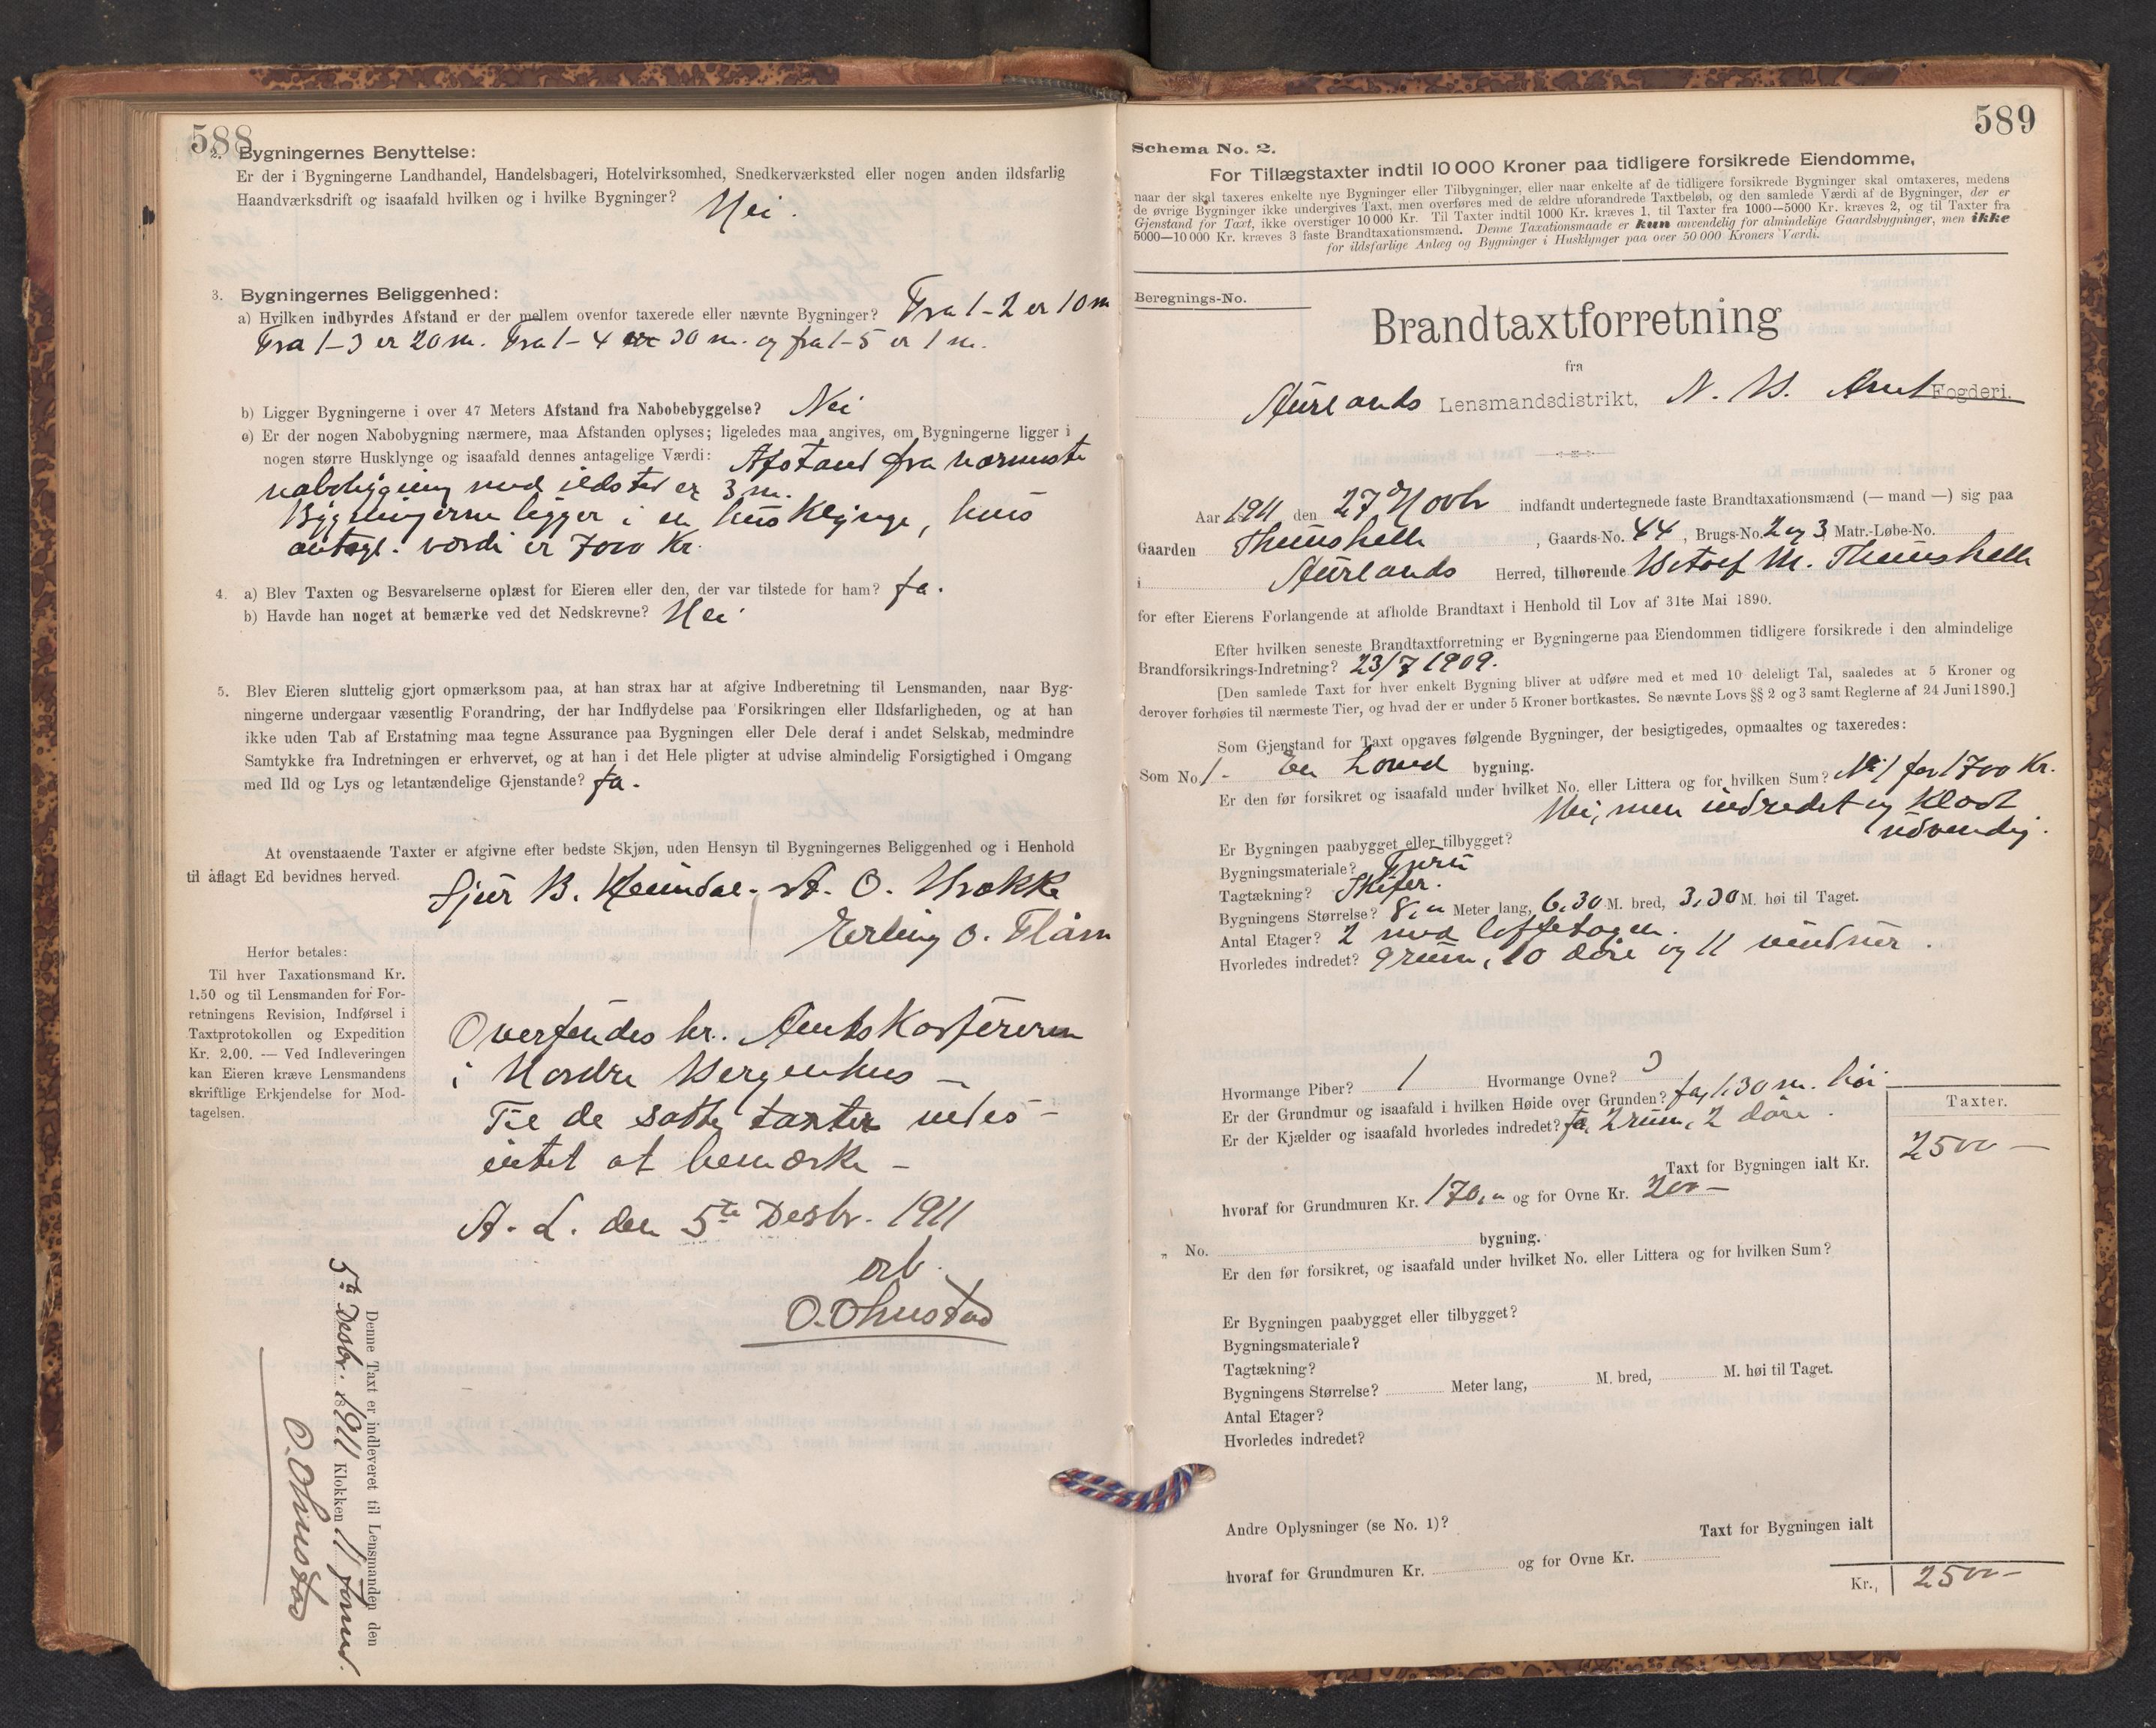 588
2. Bygningernes Benyttelse:
Er der i Bygningerne Landhandel, Handelsbageri, Hotelvirksomhed, Snedkerværksted eller nogen anden ildsfarlig
Haandværksdrift og isaafald hvilken og i hvilke Bygninger? Nei.
3. Bygningernes Beliggenhed:
a) Hvilken indbyrdes Afstand er der mellem ovenfor taxerede eller nævnte Bygninger? Fra 1-2 er 10 m
Fra 1-3 er 20 m. Fra 1-4 er 30 m. og fra 1-5 er 1 m.
b) Ligger Bygningerne i over 47 Meters Afstand fra Nabobebyggelse? Nei
c) Er der nogen Nabobygning nærmere, maa Afstanden oplyses; ligeledes maa angives, om Bygningerne ligger i
nogen større Husklynge og isaafald dennes antagelige Værdi: Afstand fra nærmeste
nabobygning med ildsted er 3 m.
Bygningerne ligger i en husklynge, hvis
antagl. værdi er 7000 Kr.
4. a) Blev Taxten og Besvarelserne oplæst for Eieren eller den, der var tilstede for ham? Ja.
b) Havde han noget at bemærke ved det Nedskrevne? Nei
5. Blev Eieren sluttelig gjort opmærksom paa, at han strax har at afgive Indberetning til Lensmanden, naar Byg-
ningerne undergaar væsentlig Forandring, der har Indflydelse paa Forsikringen eller Ildsfarligheden, og at han
ikke uden Tab af Erstatning maa tegne Assurance paa Bygningen eller Dele deraf i andet Selskab, medmindre
Samtykke fra Indretningen er erhvervet, og at han i det Hele pligter at udvise almindelig Forsigtighed i Omgang
med Ild og Lys og letantændelige Gjenstande? Ja.
At ovenstaaende Taxter er afgivne efter bedste Skjøn, uden Hensyn til Bygningernes Beliggenhed og i Henhold
til aflagt Ed bevidnes herved.
Sjur B. Heimdal. A. O. Brække
Erling O. Flåm
Herfor betales:
Til hver Taxationsmand Kr.
1.50 og til Lensmanden for For-
retningens Revision, Indførsel i
Taxtprotokollen og Expedition
Kr. 2.00. — Ved Indleveringen
kan Eieren kræve Lensmandens
skriftlige Erkjendelse for Mod-
tagelsen.
Oversendes hr. Amtskasereren
i Nordre Bergenhus —
Til de satte taxter vides —
intet at bemærke —
A. L. den 5te Desbr. 1911
O. Ohnstad
Denne Taxt er indleveret til Lensmanden den
5te Desbr. 1911 Klokken 11 form.
O. Ohnstad
589
Schema No. 2.
For Tillægstaxter indtil 10 000 Kroner paa tidligere forsikrede Eiendomme,
naar der skal taxeres enkelte nye Bygninger eller Tilbygninger, eller naar enkelte af de tidligere forsikrede Bygninger skal omtaxeres, medens
de øvrige Bygninger ikke undergives Taxt, men overføres med de ældre uforandrede Taxtbeløb, og den samlede Værdi af de Bygninger, der er
Gjenstand for Taxt, ikke overstiger 10 000 Kr. Til Taxter indtil 1000 Kr. kræves 1, til Taxter fra 1000—5000 Kr. kræves 2, og til Taxter fra
5000—10 000 Kr. kræves 3 faste Brandtaxationsmænd. Denne Taxationsmaade er kun anvendelig for almindelige Gaardsbygninger, men ikke
for ildsfarlige Anlæg og Bygninger i Husklynger paa over 50 000 Kroners Værdi.
Beregnings-No.
Brandtaxtforretning
fra
Aurlands Lensmandsdistrikt, N. B. Amt Fogderi.
Aar 1911 den 27 Novbr indfandt undertegnede faste Brandtaxationsmænd (— mand —) sig paa
Gaarden Thunshelle, Gaards-No. 44, Brugs-No. 2 og 3 Matr.-Løbe-No.
i Aurlands Herred, tilhørende M. Thunshelle
for efter Eierens Forlangende at afholde Brandtaxt i Henhold til Lov af 31te Mai 1890.
Efter hvilken seneste Brandtaxtforretning er Bygningerne paa Eiendommen tidligere forsikrede i den almindelige
Brandforsikrings-Indretning? 23/7 1909.
[Den samlede Taxt for hver enkelt Bygning bliver at udføre med et med 10 deleligt Tal, saaledes at 5 Kroner og
derover forhøies til nærmeste Tier, og hvad der er under 5 Kroner bortkastes. Se nævnte Lovs §§ 2 og 3 samt Reglerne af 24 Juni 1890.]
Som Gjenstand for Taxt opgaves følgende Bygninger, der besigtigedes, opmaaltes og taxeredes:
Som No. 1 - En hoved bygning.
Er den før forsikret og isaafald under hvilket No. eller Littera og for hvilken Sum? No 1 for 1700 Kr.
Er Bygningen paabygget eller tilbygget? Nei, men indredet og klædt
udvendig.
Bygningsmateriale? Furu
Tagtækning? Skifer.
Bygningens Størrelse? 8,„ Meter lang, 6,30 M. bred, 3,30 M. høi til Taget.
Antal Etager? 2 med loftetagen.
Hvorledes indredet? 9 rum, 10 døre og 11 vinduer.
Hvormange Piber? 1 Hvormange Ovne? 3
Er der Grundmur og isaafald i hvilken Høide over Grunden? Ja, 1,30 m. høi.
Er der Kjælder og isaafald hvorledes indredet? Ja, 2 rum, 2 døre.
Taxter.
Taxt for Bygningen ialt Kr. 2500 —
hvoraf for Grundmuren Kr. 170,„ og for Ovne Kr. 200 —
„ No. bygning.
Er den før forsikret, og isaafald under hvilket No. eller Littera og for hvilken Sum?
Er Bygningen paabygget eller tilbygget?
Bygningsmateriale?
Tagtækning?
Bygningens Størrelse? Meter lang, M. bred, M. høi til Taget.
Antal Etager?
Hvorledes indredet?
Andre Oplysninger (se No. 1)? Taxt for Bygningen ialt
hvoraf for Grundmuren Kr. og for Ovne Kr.
Kr., 2500 —